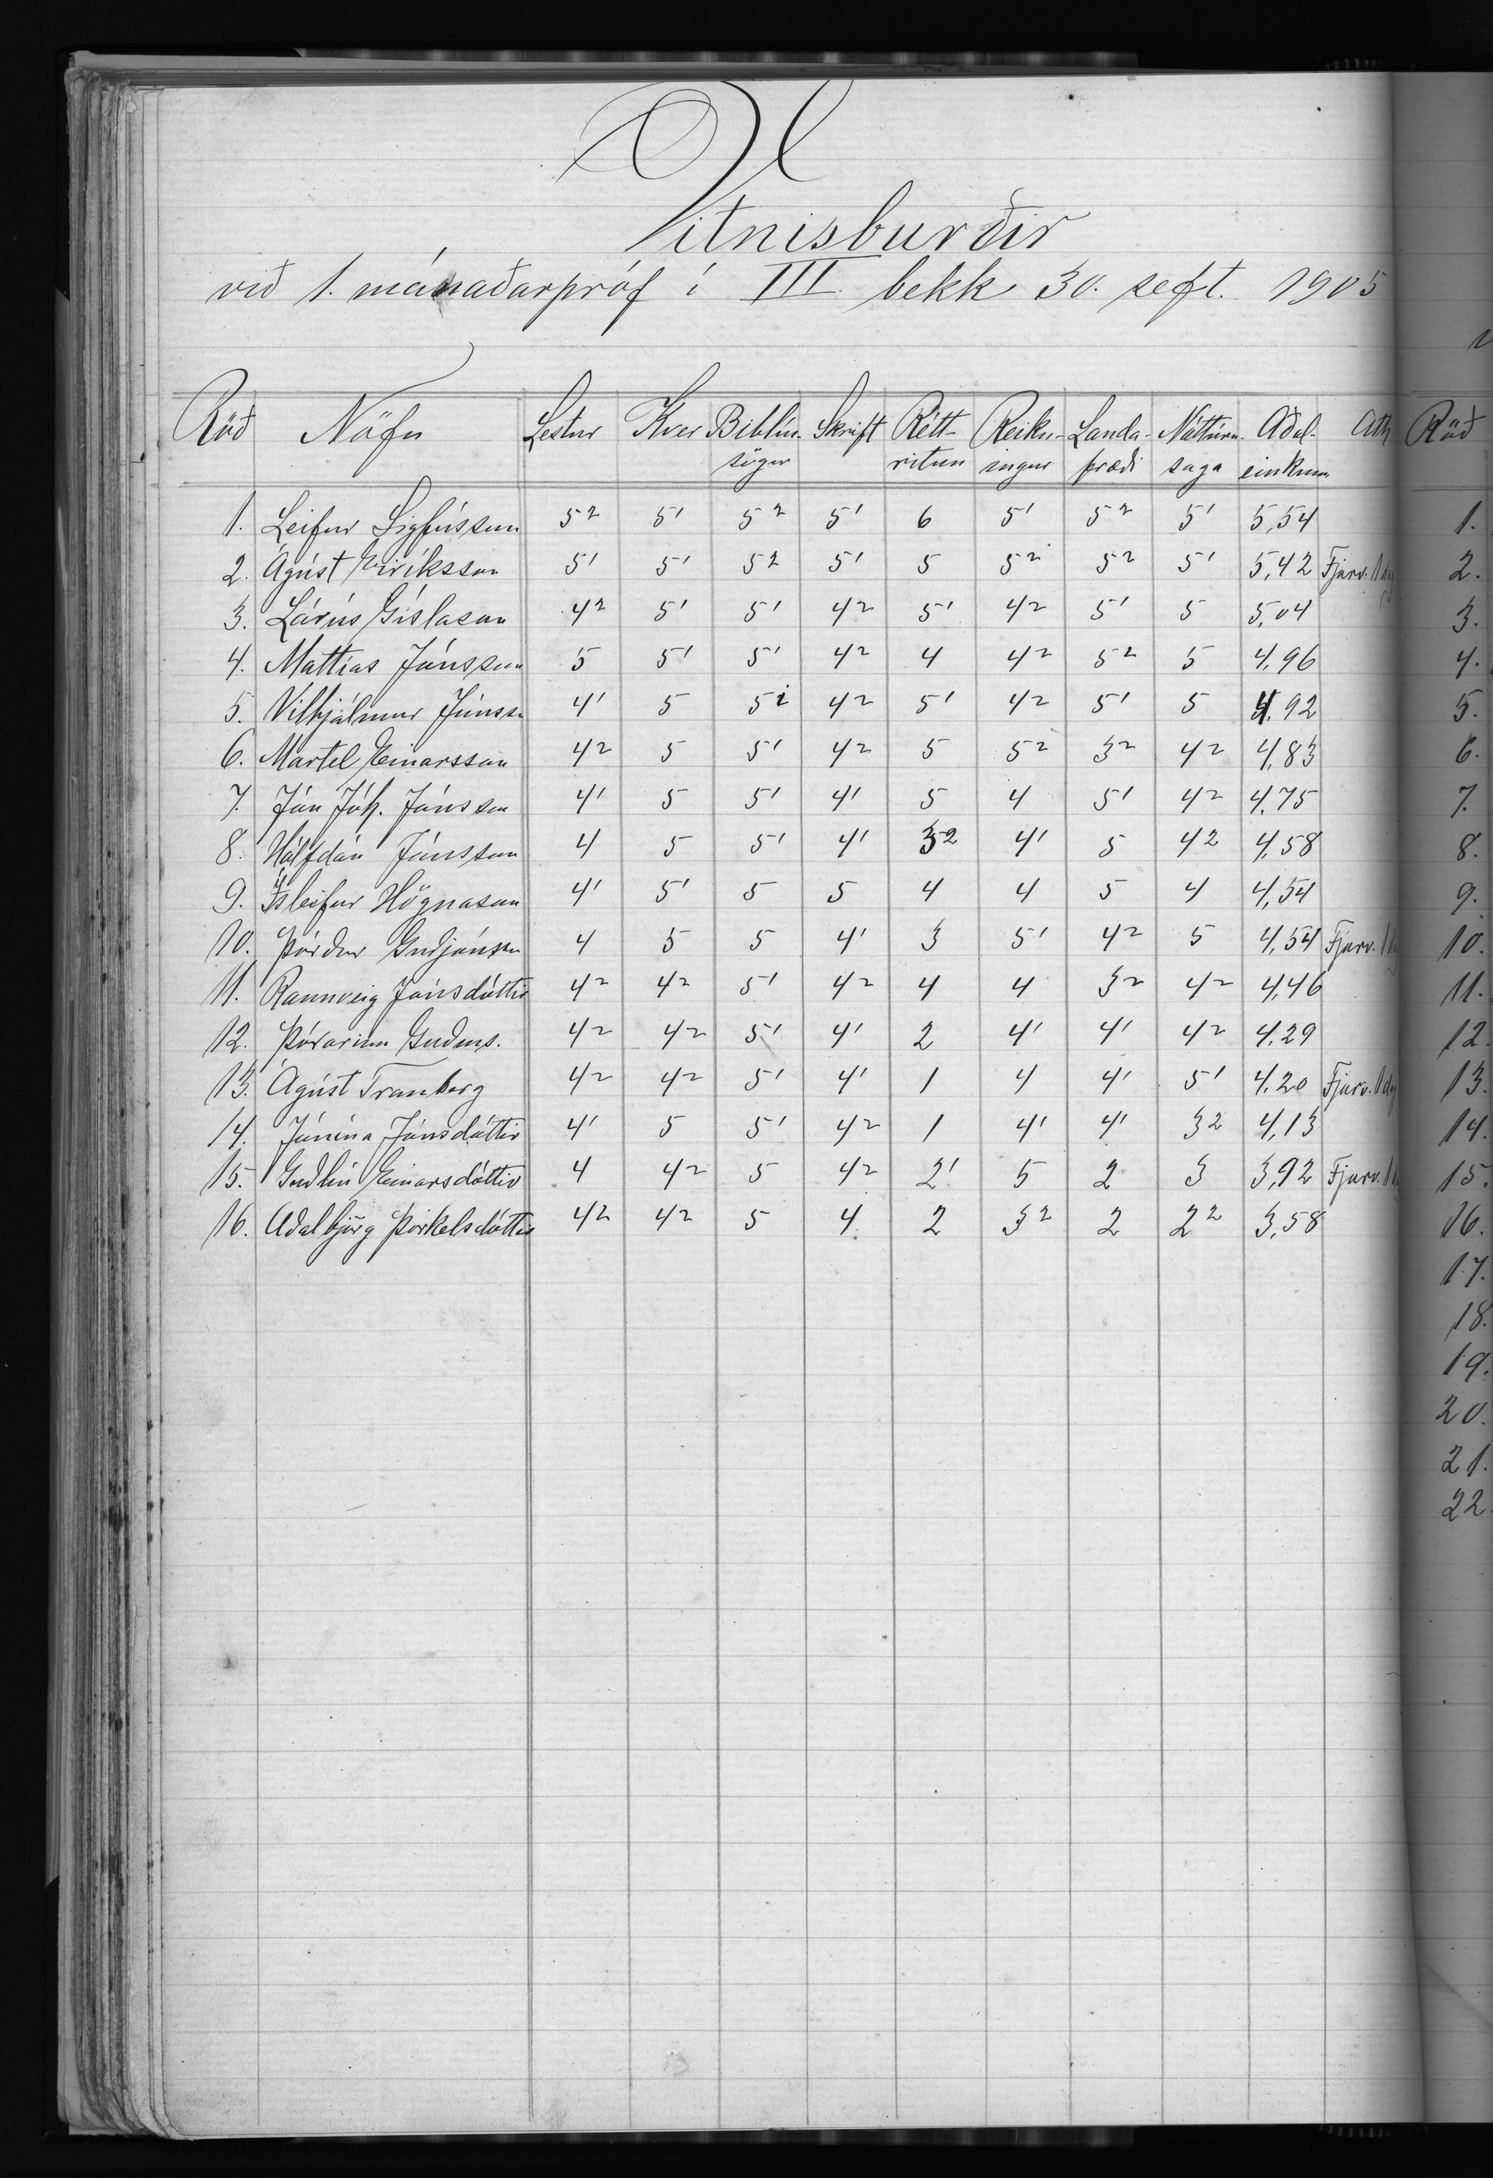 Vitnisburðir
við 1. mánaðarpróf í III. bekk 30. sept. 1905
Röð Nöfn Lestur Kver Biblíu- Skrift Rétt- Reikn- Landa- Náttúru- Aðal- Ath Röð
sögur ritun ingur fræði saga einkunn
1. Leifur Sigfússon 5² 5' 5² 5' 6 5' 5² 5' 5,54 1.
2. Ágúst Eiríksson 5' 5' 5² 5' 5 5² 5² 5' 5,42 Fjarv. 1 dag 2.
3. Lárus Gíslason 4² 5' 5' 4² 5' 4² 5' 5 5,04 3.
4. Mattías Jónsson 5 5' 5' 4² 4 4² 5² 5 4,96 4.
5. Vilhjálmur Jónss. 4' 5 5² 4² 5' 4² 5' 5 4,92 5.
6. Martel Einarsson 4² 5 5' 4² 5 5² 3² 4² 4,83 6.
7. Jón Jóh. Jónsson 4' 5 5' 4' 5 4 5' 4² 4,75 7.
8. Hálfdán Jónsson 4 5 5' 4' 3² 4' 5 4² 4,58 8.
9. Ísleifur Högnason 4' 5' 5 5 4 4 5 4 4,54 9.
10. Þórður Guðjónss. 4 5 5 4' 3 5' 4² 5 4,54 Fjarv. 1 10.
11. Rannveig Jónsdóttir 4² 4² 5' 4² 4 4 3² 4² 4,46 11.
12. Þórarinn Guðms. 4² 4² 5' 4' 2 4' 4' 4² 4,29 12.
13. Ágúst Tranberg 4² 4² 5' 4' 1 4 4' 5' 4,20 Fjarv. 1 dag 13.
14. Jónína Jónsdóttir 4' 5 5' 4² 1 4' 4' 3² 4,13 14.
15. Guðlín Einarsdóttir 4 4² 5 4² 2' 5 2 3 3,92 Fjarv. 1 15.
16. Aðalbjörg Þorkelsdóttir 4² 4² 5 4 2 3² 2 2² 3,58 16.
17.
18.
19.
20.
21.
22.